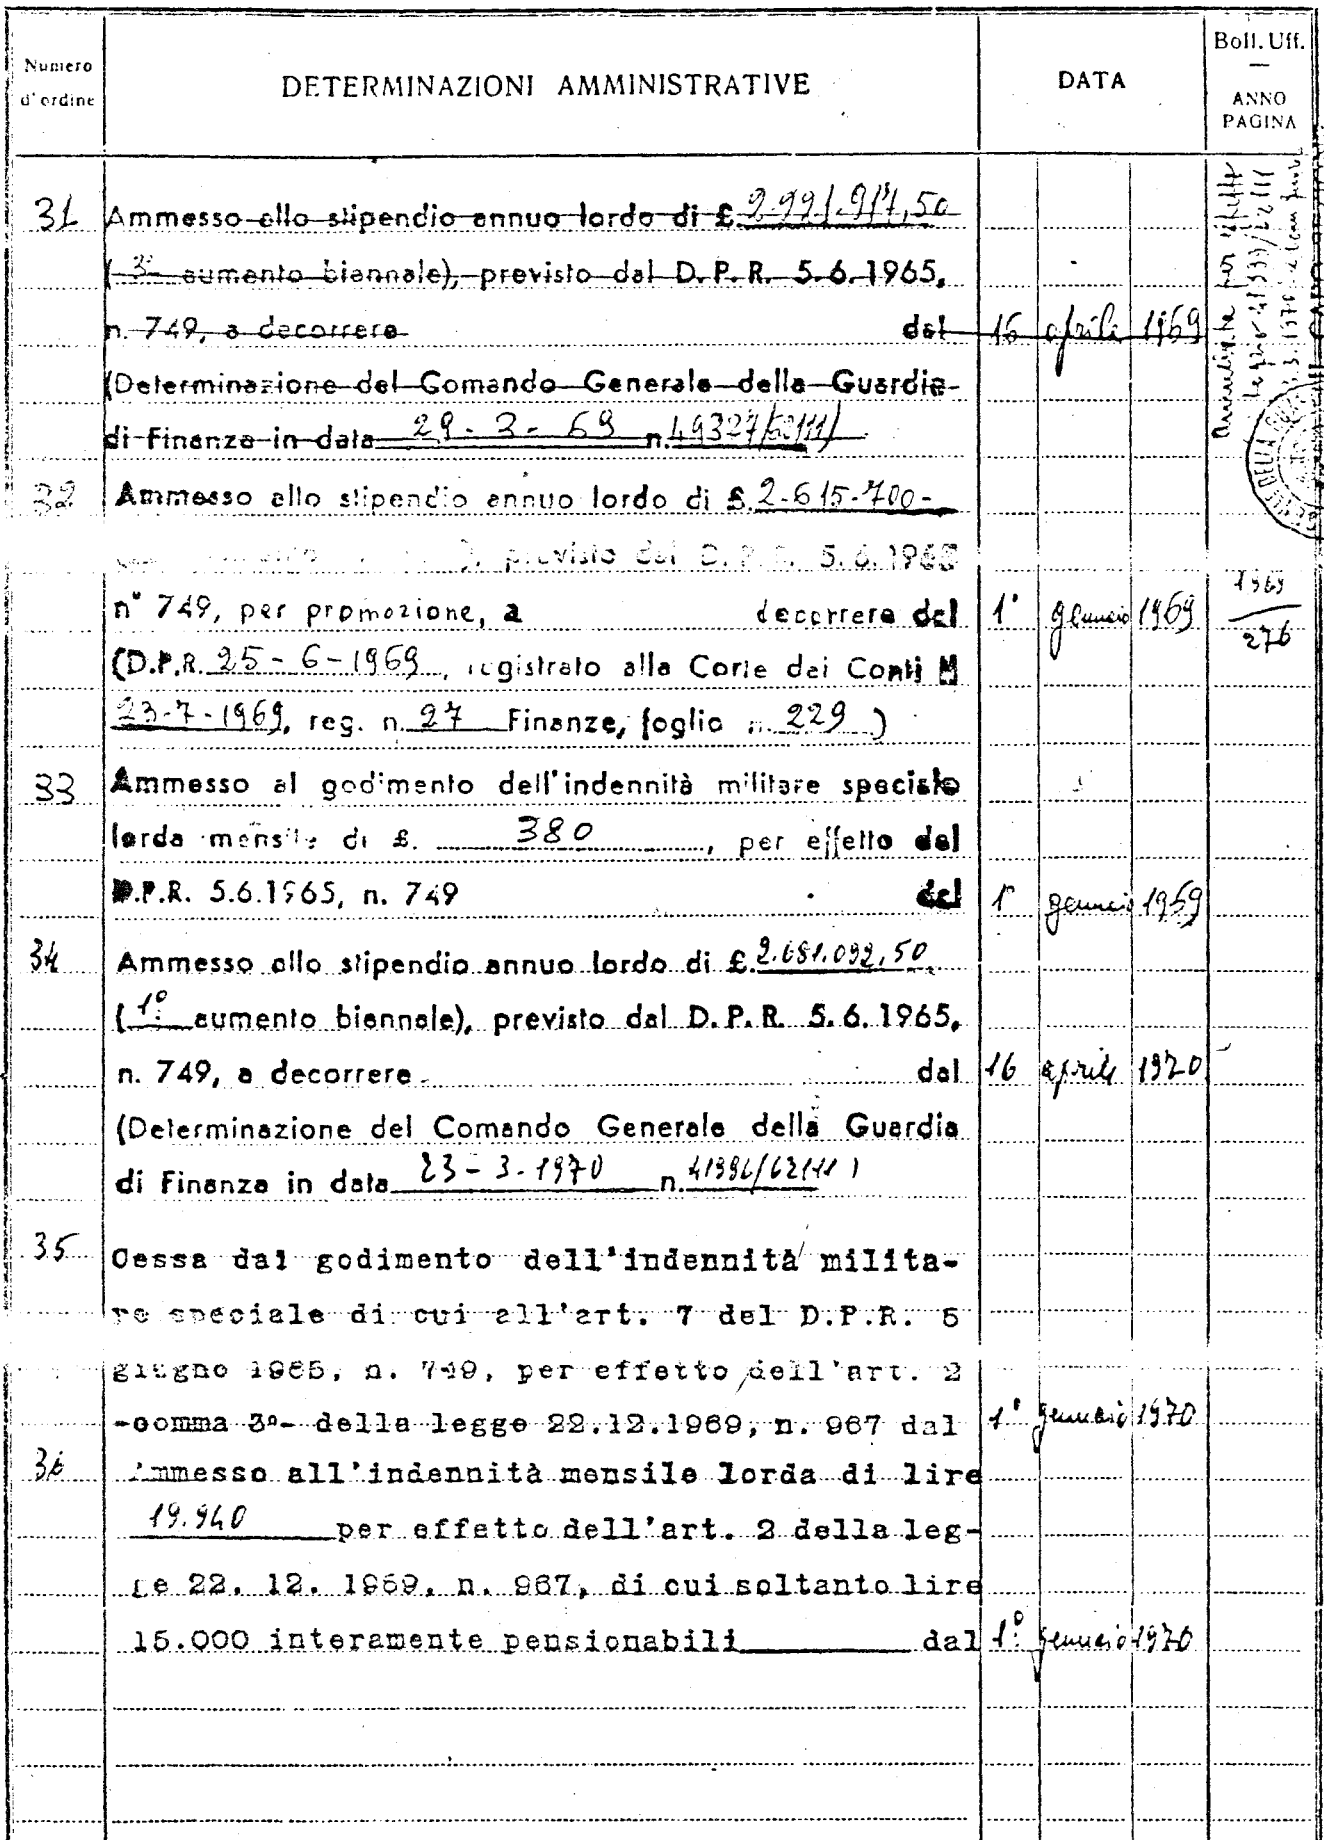 Numero d'ordine
DETERMINAZIONI AMMINISTRATIVE
DATA
Boll. Uff.
—
ANNO
PAGINA
31 Ammesso allo stipendio annuo lordo di £.
( 3º aumento biennale), previsto dal D.P.R. 5.6.1965,
n. 749, a decorrere dal 16 aprile 1969
(Determinazione del Comando Generale della Guardia
di Finanza in data 29-3-69 n. 49327/62111)
32 Ammesso allo stipendio annuo lordo di £. 2.615.700-
previsto dal D.P.R. 5.6.1965
n° 749, per promozione, a decorrere dal 1° gennaio 1969 1969
(D.P.R. 25-6-1969, registrato alla Corte dei Conti 276
23-7-1969, reg. n. 27 Finanze, foglio n. 229)
33 Ammesso al godimento dell'indennità militare speciale
lorda mensile di £. 380, per effetto del
D.P.R. 5.6.1965, n. 749 dal 1° gennaio 1969
34 Ammesso allo stipendio annuo lordo di £. 2.681.092,50
( 1º aumento biennale), previsto dal D.P.R. 5.6.1965,
n. 749, a decorrere dal 16 aprile 1970
(Determinazione del Comando Generale della Guardia
di Finanza in data 23-3-1970 n.
35 Cessa dal godimento dell'indennità milita-
re speciale di cui all'art. 7 del D.P.R. 5
giugno 1965, n. 749, per effetto dell'art. 2
-comma 3º- della legge 22.12.1969, n. 967 dal 1° gennaio 1970
36 Ammesso all'indennità mensile lorda di lire
19.940 per effetto dell'art. 2 della leg-
ge 22. 12. 1969, n. 967, di cui soltanto lire
15.000 interamente pensionabili dal 1º gennaio 1970